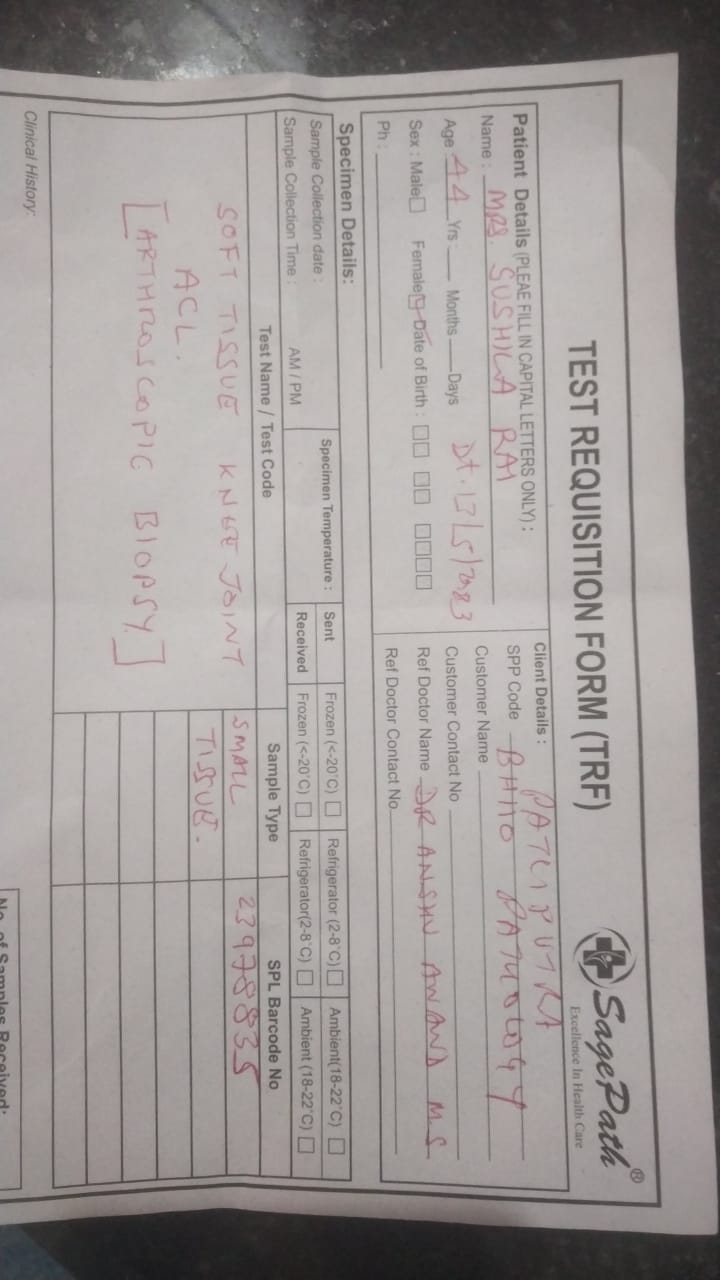 TEST REQUISITION FORM (TRF)
SagePath®
Excellence In Health Care
Patient Details (PLEAE FILL IN CAPITAL LETTERS ONLY) :
Name : MRS. SUSHILA RAI
Age 44 Yrs : Months Days Dt. 13/5/2023
Sex : Male Female Date of Birth :
Ph :
Client Details : PATLIPUTRA
SPP Code BH110 PATHOLOGY
Customer Name
Customer Contact No
Ref Doctor Name DR ANSHU ANAND M.S
Ref Doctor Contact No
Specimen Details:
Sample Collection date :
Sample Collection Time : AM / PM
Specimen Temperature :
Sent Frozen (<-20°C) Refrigerator (2-8°C) Ambient(18-22°C)
Received Frozen (<-20°C) Refrigerator(2-8°C) Ambient (18-22°C)
Test Name / Test Code Sample Type SPL Barcode No
SOFT TISSUE KNEE JOINT SMALL 23978835
ACL. TISSUE.
[ARTHROSCOPIC BIOPSY]
Clinical History:
No. of Samples Received: